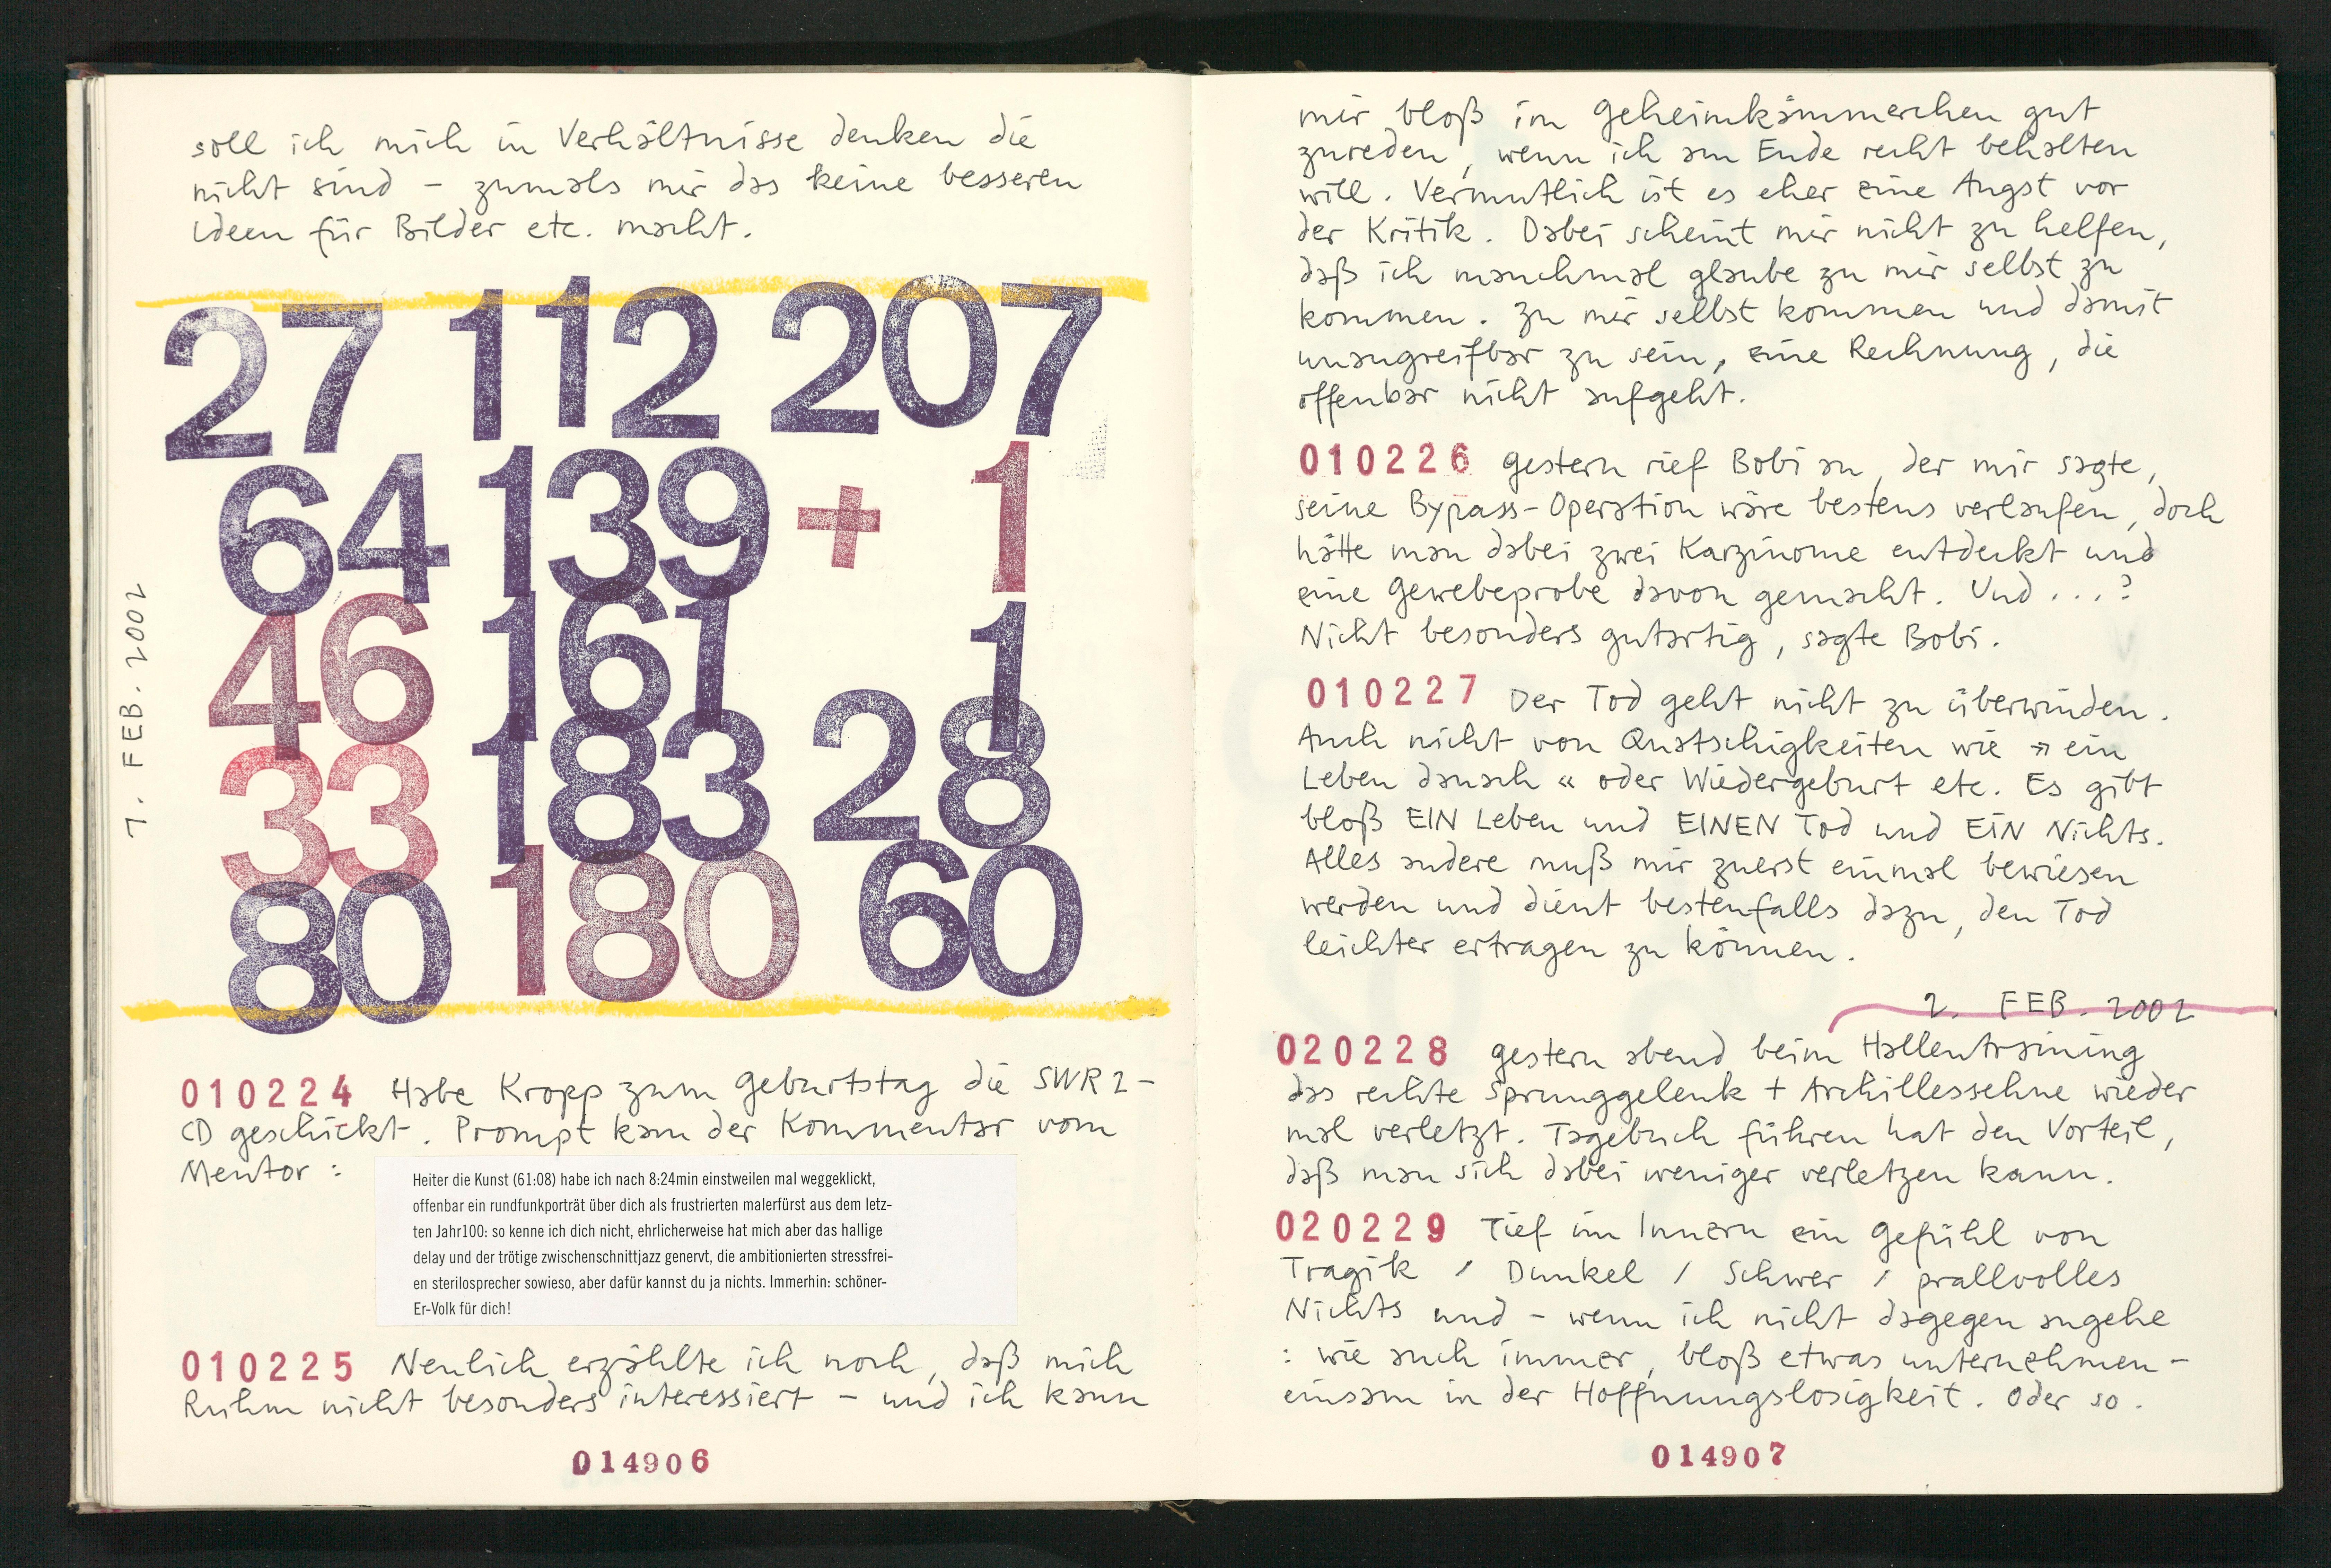 soll ich mich in Verhältnisse denken die
nicht sind – zumals mir das keine besseren
Ideen für Bilder etc. macht.
27 112 207
64 139 + 1
46 161 1
33 183 28
80 180 60
1. FEB. 2002
010224 Habe Kropp zum Geburtstag die SWR2-
CD geschickt. Prompt kam der Kommentar vom
Mentor:
Heiter die Kunst (61:08) habe ich nach 8:24min einstweilen mal weggeklickt,
offenbar ein rundfunkporträt über dich als frustrierten malerfürst aus dem letz-
ten Jahr100: so kenne ich dich nicht, ehrlicherweise hat mich aber das hallige
delay und der trötige zwischenschnittjazz genervt, die ambitionierten stressfrei-
en sterilosprecher sowieso, aber dafür kannst du ja nichts. Immerhin: schöner-
Er-Volk für dich!
010225 Neulich erzählte ich noch, daß mich
Ruhm nicht besonders interessiert – und ich kann
014906
mir bloß im Geheimkämmerchen gut
zureden, wenn ich am Ende recht behalten
will. Vermutlich ist es eher eine Angst vor
der Kritik. Dabei scheint mir nicht zu helfen,
daß ich manchmal glaube zu mir selbst zu
kommen. Zu mir selbst kommen und damit
unangreifbar zu sein, eine Rechnung, die
offenbar nicht aufgeht.
010226 gestern rief Bobi an, der mir sagte,
seine Bypass-Operation wäre bestens verlaufen, doch
hätte man dabei zwei Karzinome entdeckt und
eine Gewebeprobe davon gemacht. Und ...?
Nicht besonders gutartig, sagte Bobi.
010227 Der Tod geht nicht zu überwinden.
Auch nicht von Quatschigkeiten wie »ein
Leben danach« oder Wiedergeburt etc. Es gibt
bloß EIN Leben und EINEN Tod und EIN Nichts.
Alles andere muß mir zuerst einmal bewiesen
werden und dient bestenfalls dazu, den Tod
leichter ertragen zu können.
2. FEB. 2002
020228 gestern abend beim Hallentraining
das rechte Sprunggelenk + Archillessehne wieder
mal verletzt. Tagebuch führen hat den Vorteil,
daß man sich dabei weniger verletzen kann.
020229 Tief im Innern ein Gefühl von
Tragik / Dunkel / Schwer / prallvolles
Nichts und – wenn ich nicht dagegen angehe
: wie auch immer, bloß etwas unternehmen –
einsam in der Hoffnungslosigkeit. Oder so.
014907